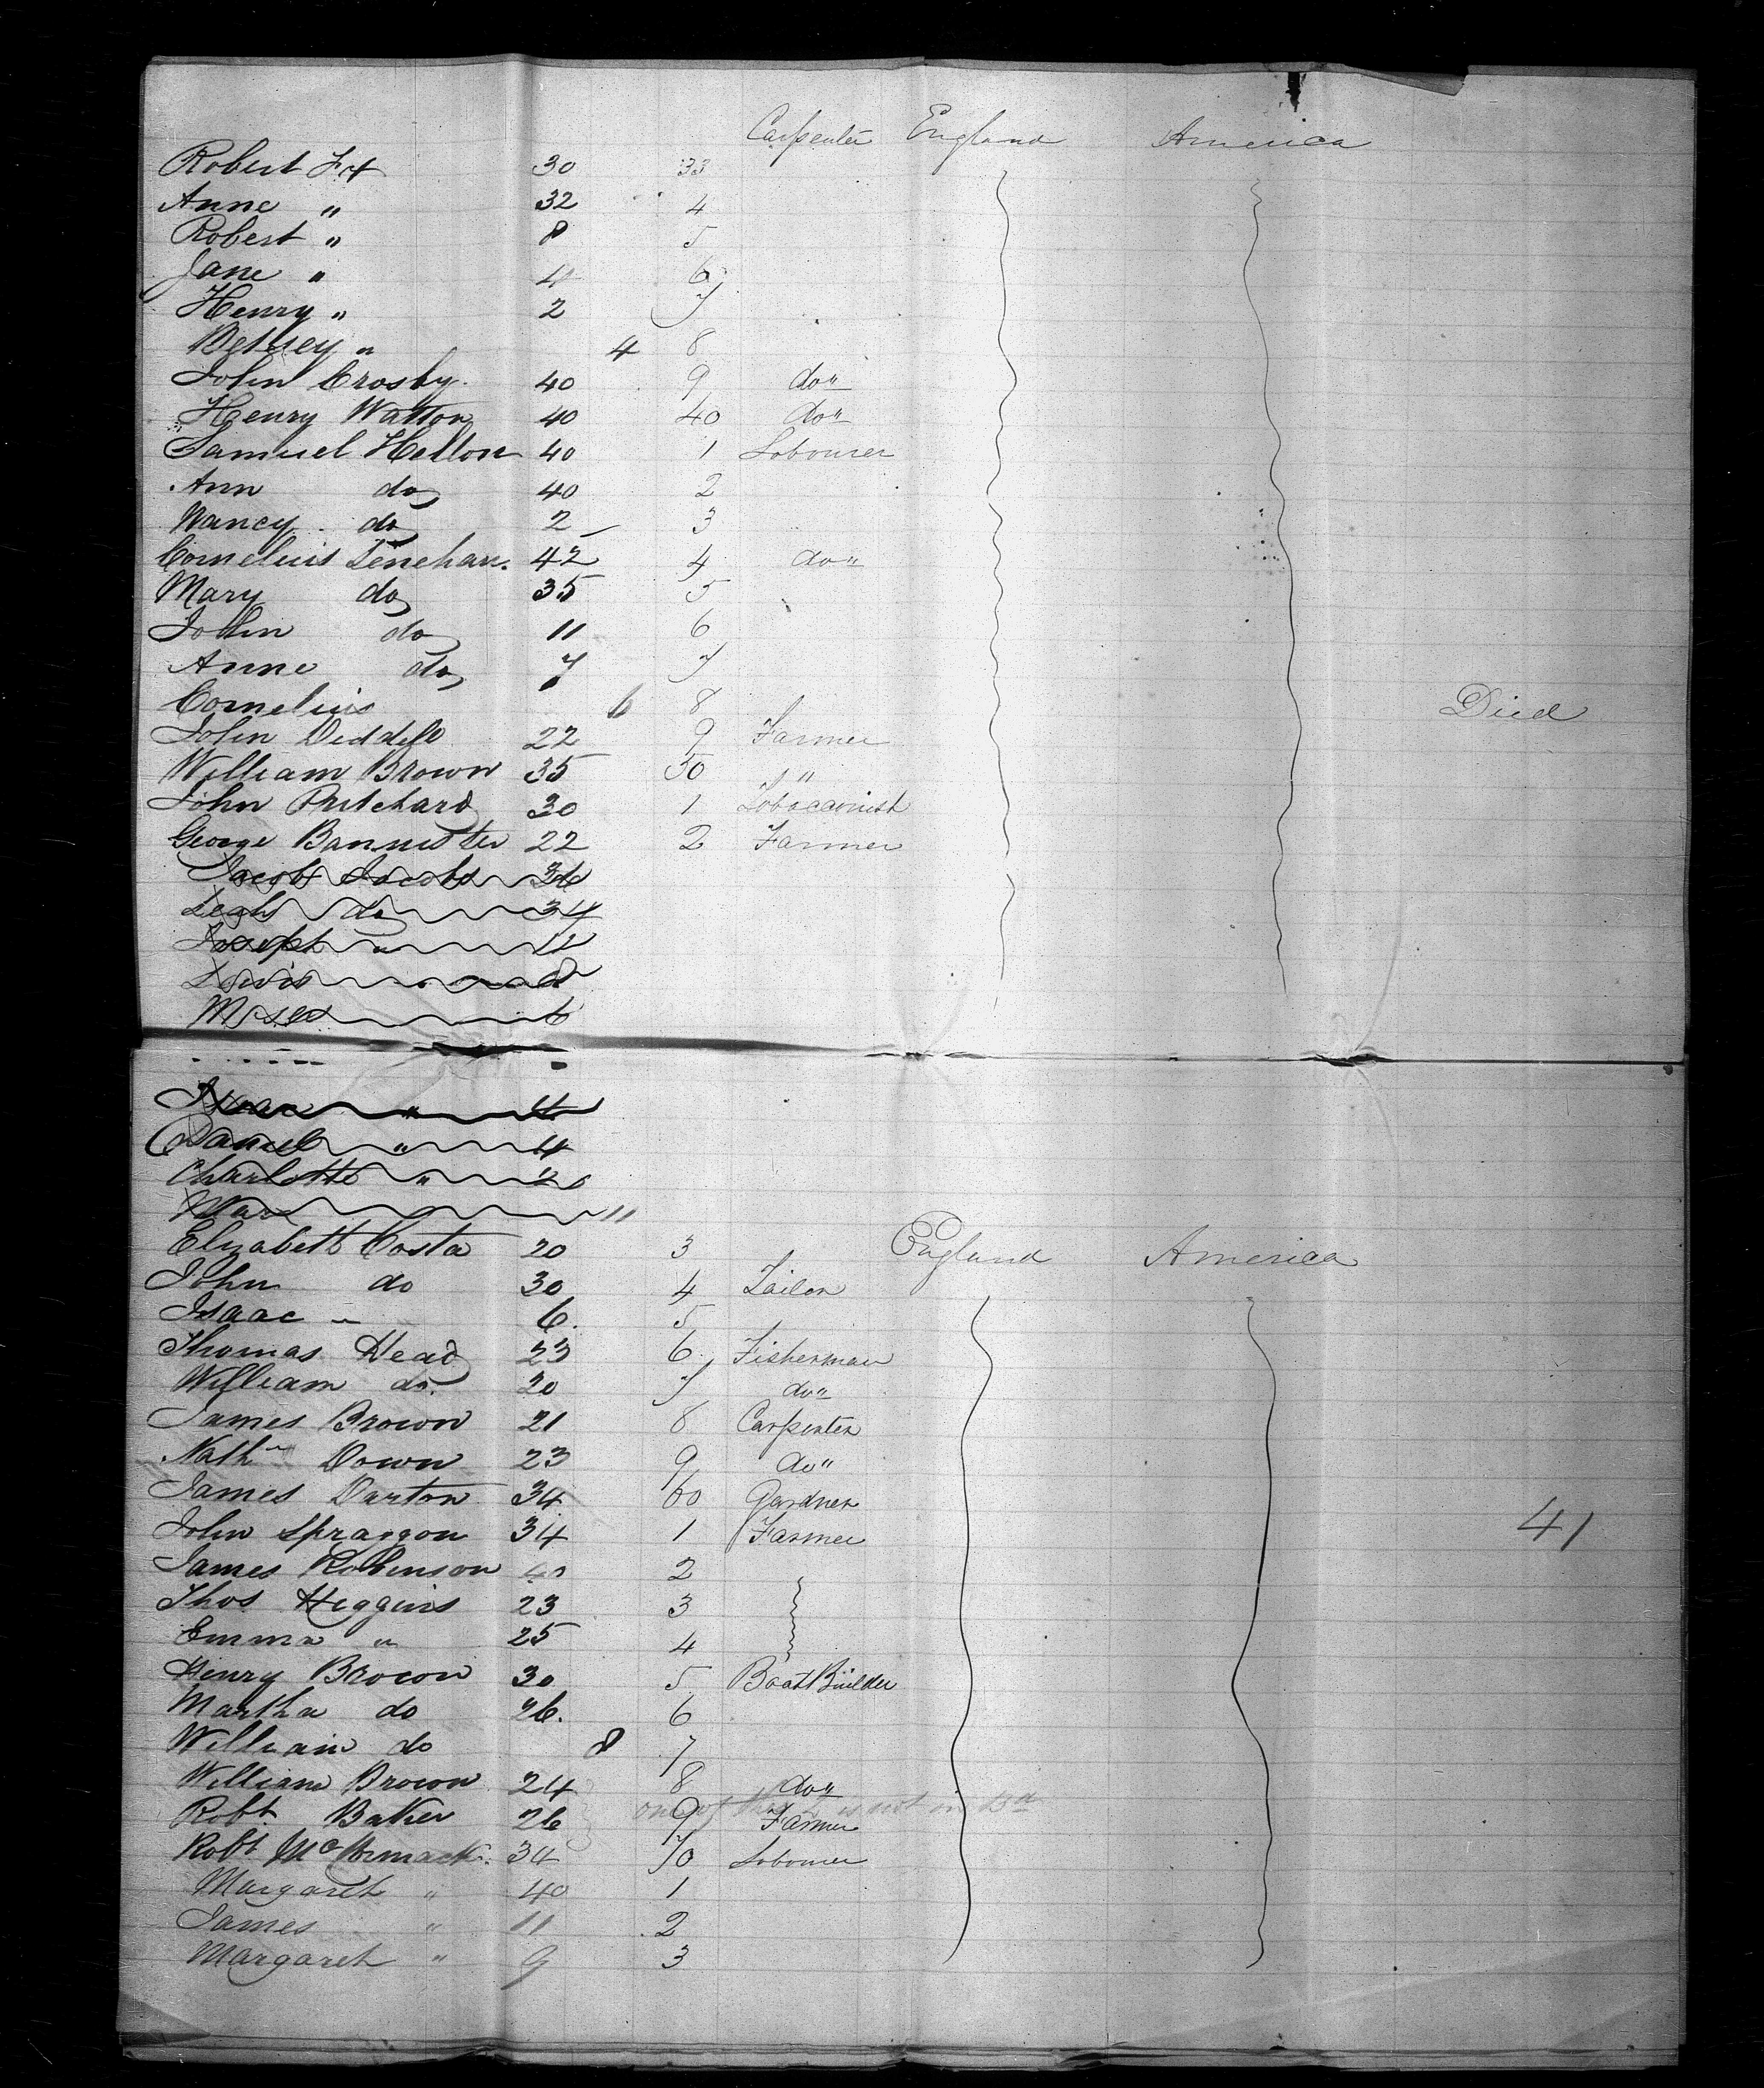 Carpenter England America
Robert 30 33
Anne " 32 4
Robert " 8 5
Jane " 4 6
Henry " 2 7
Betsey " 4 8
John Crosby 40 9 do"
Henry Watton 40 40 do"
Samuel Hellon 40 1 Labourer
Ann do 40 2
Nancy do 2 3
Cornelius Lenehan. 42 4 do"
Mary do 35 5
John do 11 6
Anne do 7 7
Cornelius 6 8 Died
John 22 9 Farmer
William Brown 35 50 "
John Pritchard 30 1 Tobacconist
George Bannister 22 2 Farmer
Jacob Jacobs 36
Leah do 34
Joseph " 11
Lewis " 8
Moses 6
Isaac " 4
Daniel " 4
Charlotte " 2
11
Elizabeth Costa 20 3 England America
John do 30 4 Tailor
Isaac " 6. 5
Thomas Head 23 6 Fisherman
William do. 20 7 do"
James Brown 21 8 Carpenter
Nathn Down 23 9 do"
James Darton 34 60 Gardner
John Spraggon 34 1 Farmer 41
James Robinson 2
Thos Higgins 23 3
Emma " 25 4
Henry Brown 30 5 Boat Builder
Martha do 26. 6
William do 8 7
William Brown 24 8 do"
one of these is not on Bd
Robt Baker 26 9 Farmer
Robt McCormack. 34 70 Labourer
Margaret " 40 1
James " 11 2
Margaret " 9 3